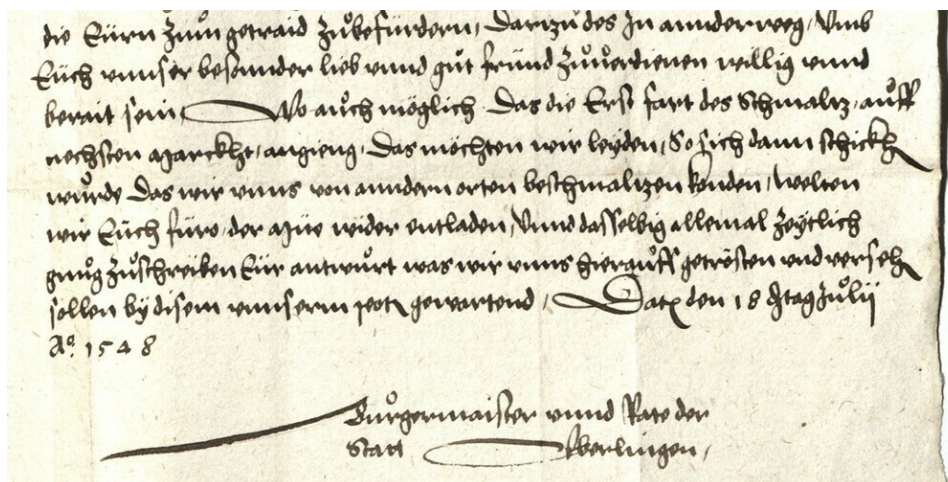 die Eürn zum getraid zůbefürdern, Darzů des Jn annder weg, Umb
Eüch unnser besonnder lieb unnd gůt fründ zůverdienen willig unnd
berait sein Wo aůch möglich Das die Erst fart des Schmaltz, aůff
nechsten Marckht, angieng, Das möchten wir leyden, So sich dann schickh
würde Das wir unns von anndern orten beschmaltzen konden, welten
wir Eüch füro der Müe wider entladen, Unnd dasselbig allemal zeytlich
gnůg zůschreiben Eür antwůrt was wir unns hieraůff getrösten und verseh
sollen by disem unnserm pott gewartend, Dat den 18 tag Julij
Ao. 1548
Bůrgermaister unnd Rate der
Statt Überlingen,